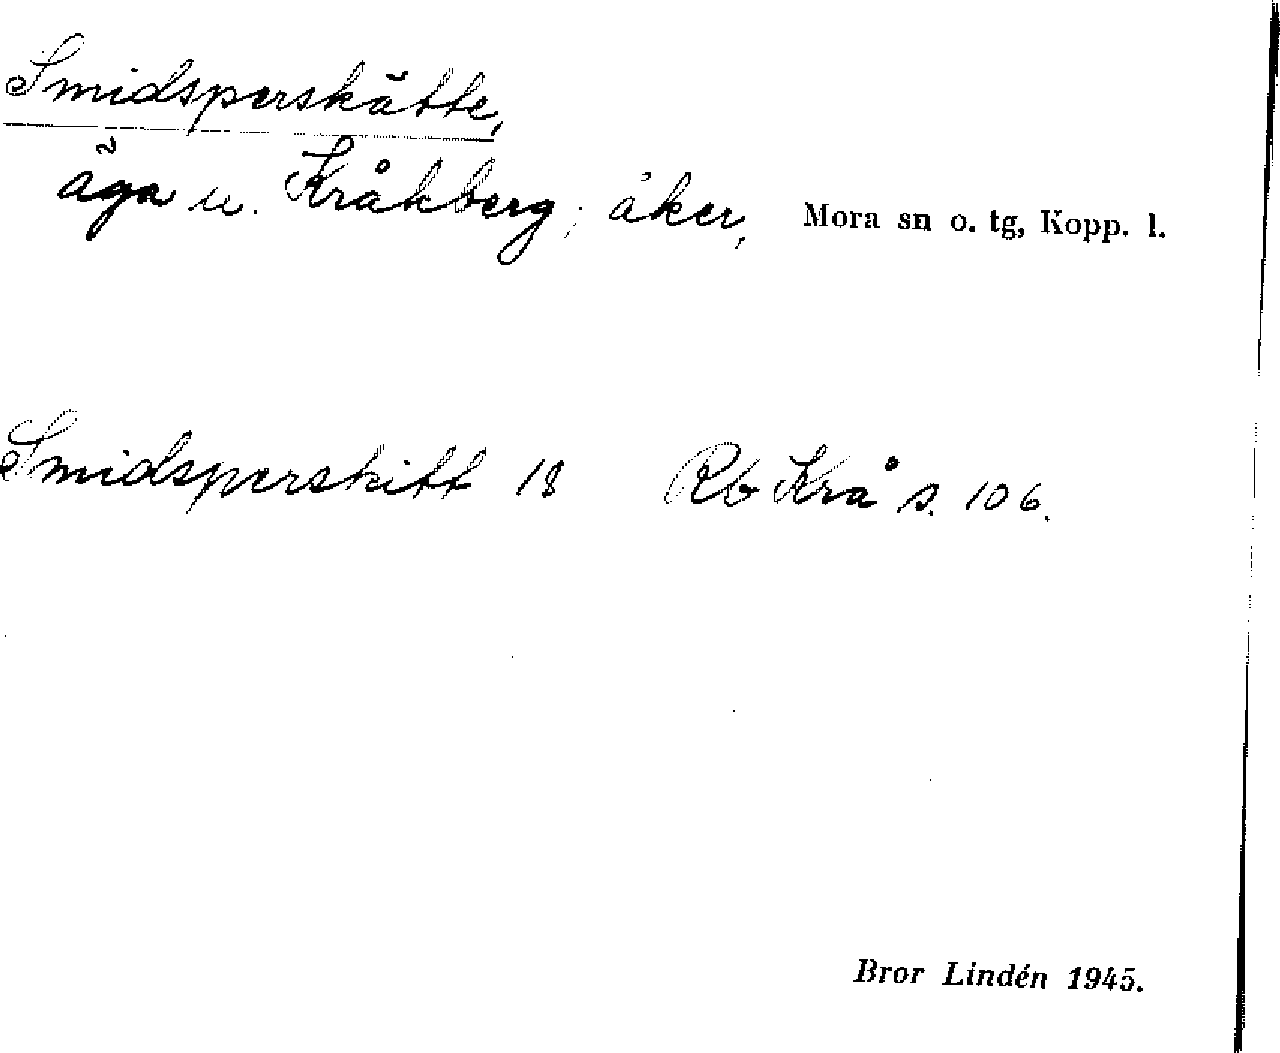 Smidsperskätte,
äga u. Kråkberg; åker, Mora sn o. tg, Kopp. l.
Smidsperskitt 18 Rb Krå s. 106.
Bror Lindén 1945.